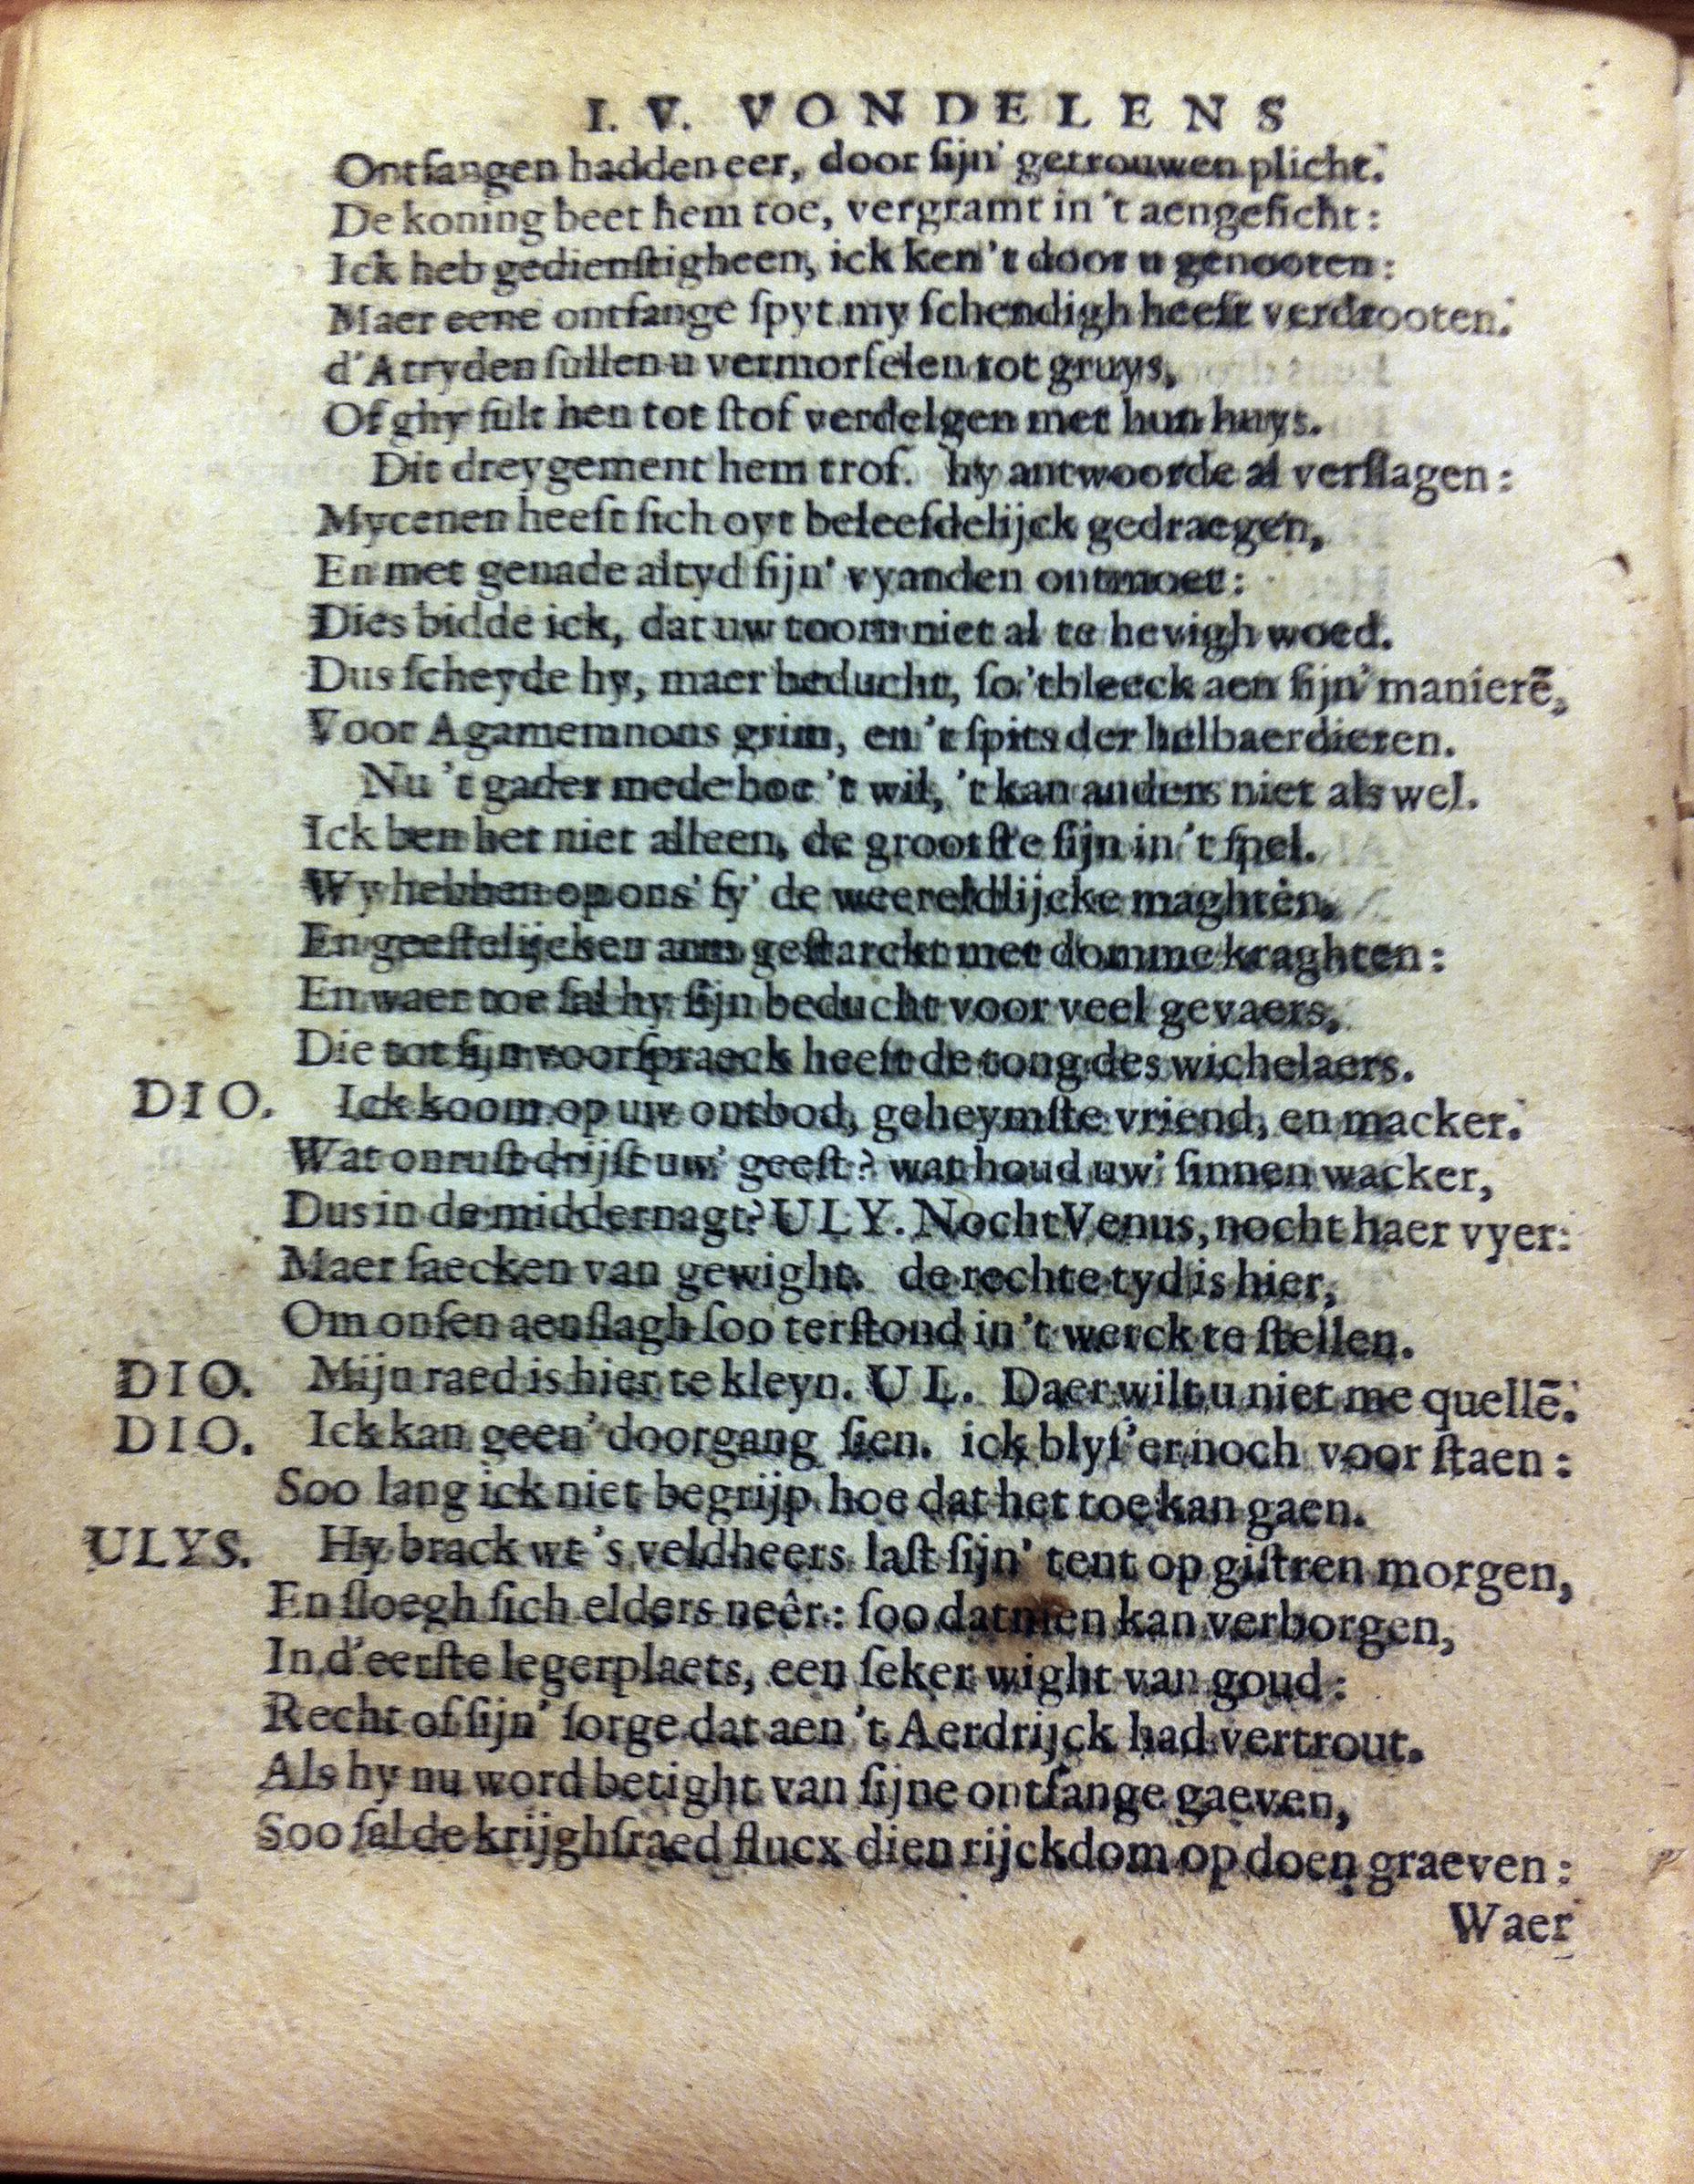 I. V. VONDELENS
Ontfangen hadden eer, door ſijn' getrouwen plicht.
De koning beet hem toe, vergramt in 't aengeſicht:
Ick heb gedienſtigheen, ick ken 't door u genooten:
Maer eene ontfange ſpyt my ſchendigh heeft verdrooten.
d'Atryden ſullen u vermorſelen tot gruys,
Of ghy ſult hen tot ſtof verdelgen met hun huys.
Dit dreygement hem trof. hy antwoorde al verſlagen:
Mycenen heeft ſich oyt beleefdelijck gedraegen,
En met genade altyd ſijn' vyanden ontmoet:
Dies bidde ick, dat uw toorn niet al te hevigh woed.
Dus ſcheyde hy, maer beducht, ſo 't bleeck aen ſijn' manierē,
Voor Agamemnons grim, en 't ſpits der helbaerdieren.
Nu 't gader mede hoe 't wil, 't kan anders niet als wel.
Ick ben het niet alleen, de grootſte ſijn in 't ſpel.
Wy hebben op ons' ſy' de weereldlijcke maghten,
En geeſtelijcken arm geſtarckt met domme kraghten:
En waer toe ſal hy ſijn beducht voor veel gevaers,
Die tot ſijn voorſpraeck heeft de tong des wichelaers.
DIO. Ick koom op uw ontbod, geheymſte vriend, en macker.
Wat onruſt drijft uw' geeſt? wat houd uw' ſinnen wacker,
Dus in de middernagt? ULY. Nocht Venus, nocht haer vyer:
Maer ſaecken van gewight. de rechte tyd is hier,
Om onſen aenſlagh ſoo terſtond in 't werck te ſtellen.
DIO. Mijn raed is hier te kleyn. UL. Daer wilt u niet me quellē.
DIO. Ick kan geen' doorgang ſien. ick blyf 'er noch voor ſtaen:
Soo lang ick niet begrijp hoe dat het toe kan gaen.
ULYS. Hy brack wt 's veldheers laſt ſijn' tent op giſtren morgen,
En ſloegh ſich elders neêr: ſoo dat men kan verborgen,
In d'eerſte legerplaets, een ſeker wight van goud:
Recht of ſijn' ſorge dat aen 't Aerdrijck had vertrout.
Als hy nu word betight van ſijne ontfange gaeven,
Soo ſal de krijghſraed flucx dien rijckdom op doen graeven:
Waer